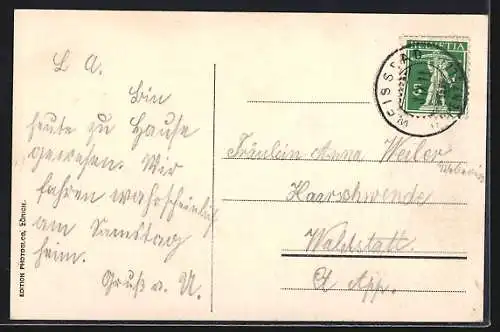 L A.
Bin
heute zu Hause
gewesen. Wir
fahren wahrscheinlich
am Samstag
heim.
Gruß v. U.
EDITION PHOTOGLOB, ZÜRICH.
HELVETIA
5
WEISSBAD
Fräulein Anna Weiler
Weberei
Haarschwende
Waldstatt.
Ct App.